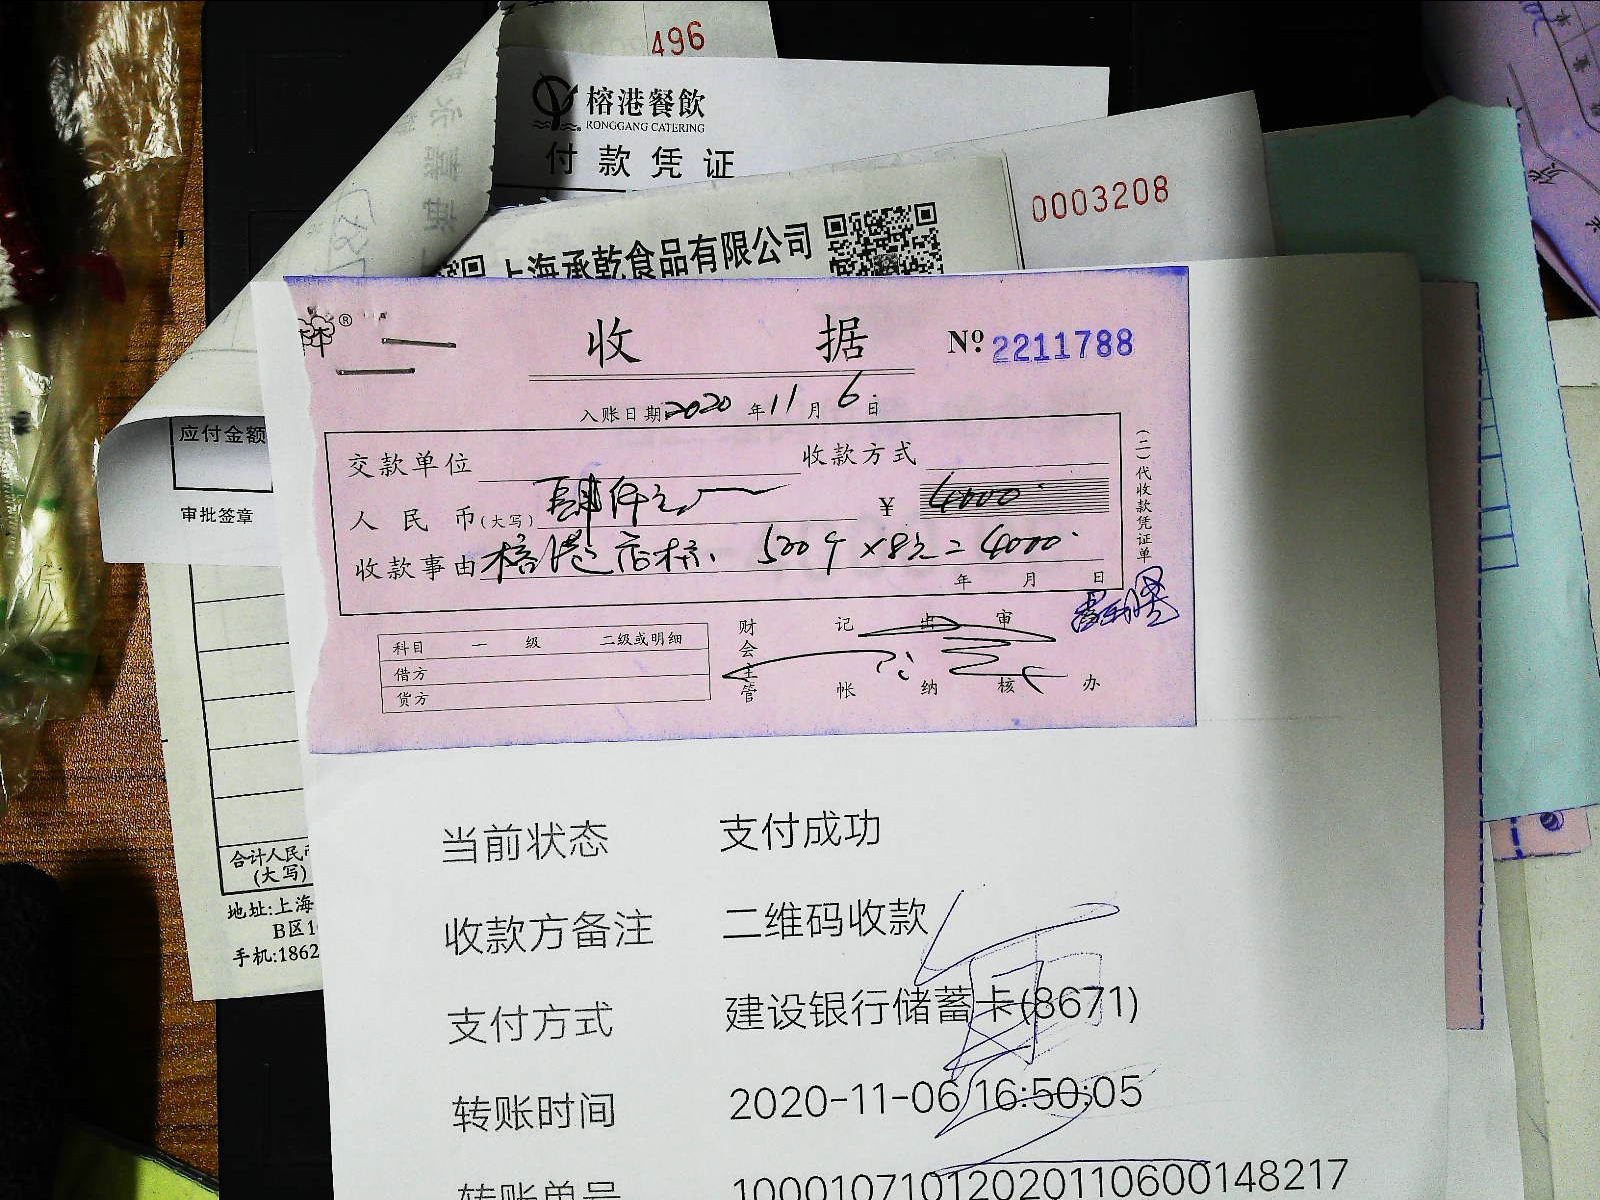 496
榕港餐飲
RONGGANG CATERING
付款凭证
0003208
上海承乾食品有限公司
®
收 据
Nº 2211788
入账日期 2020 年 11 月 6 日
交款单位 收款方式
人民币(大写) 肆仟元 ¥ 4000
收款事由 榕港 500个×8元=4000
年 月 日
(二)代收款凭证单
科目 一 级 二级或明细
借方
货方
财会主管 记帐 出纳 审核 办
应付金额
审批签章
合计人民币
(大写)
地址:上海
B区1
手机:1862
当前状态 支付成功
收款方备注 二维码收款
支付方式 建设银行储蓄卡(8671)
转账时间 2020-11-06 16:50:05
转账单号 1000107101202011060014​8217